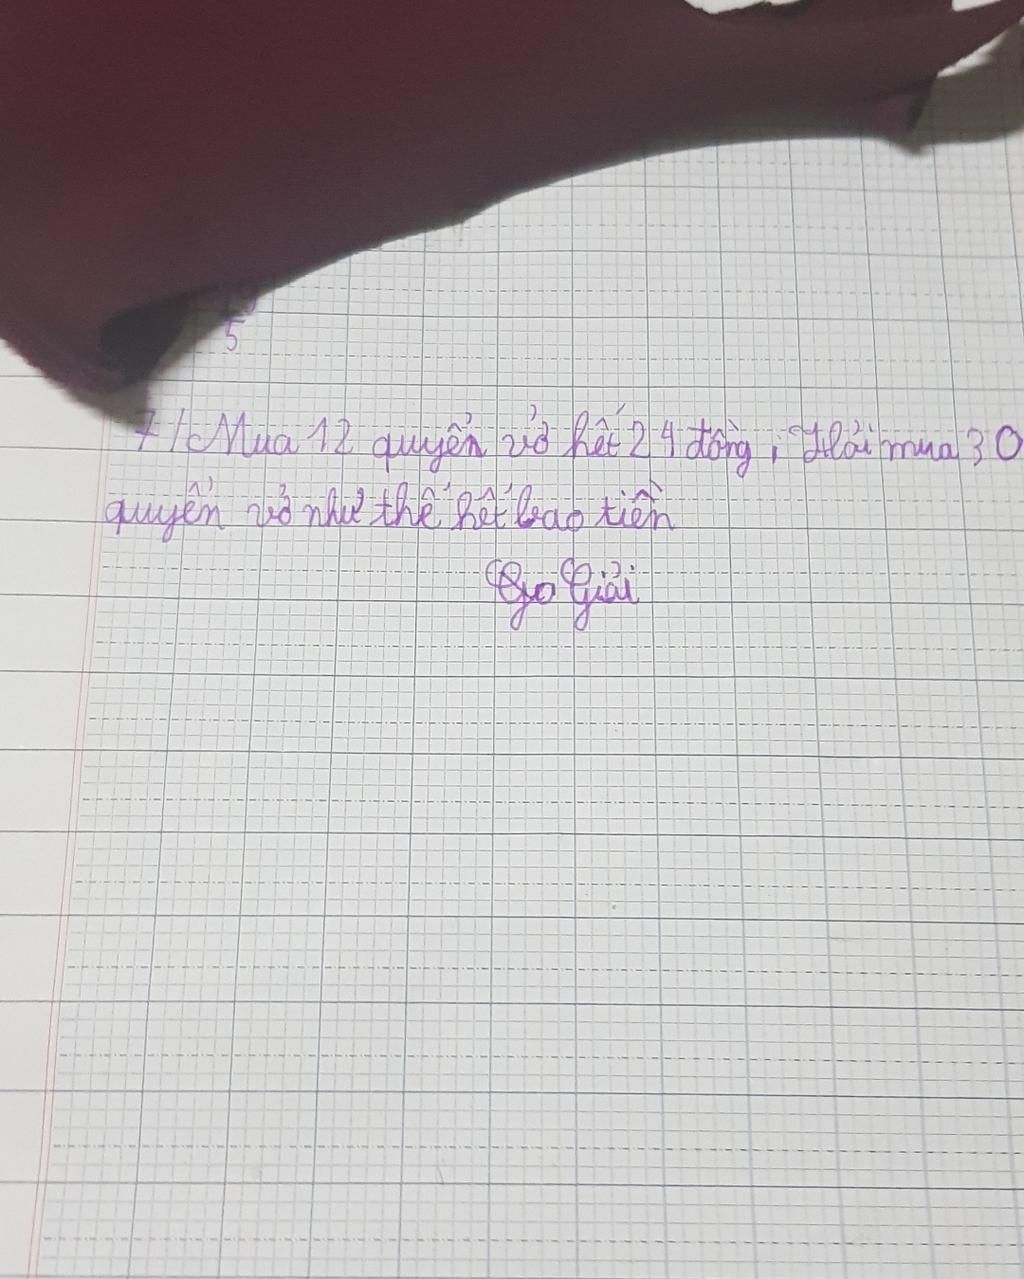 5
7/ Mua 12 quyển vở hết 24 đồng, Hỏi mua 30
quyển vở như thế hết bao tiền
Giải